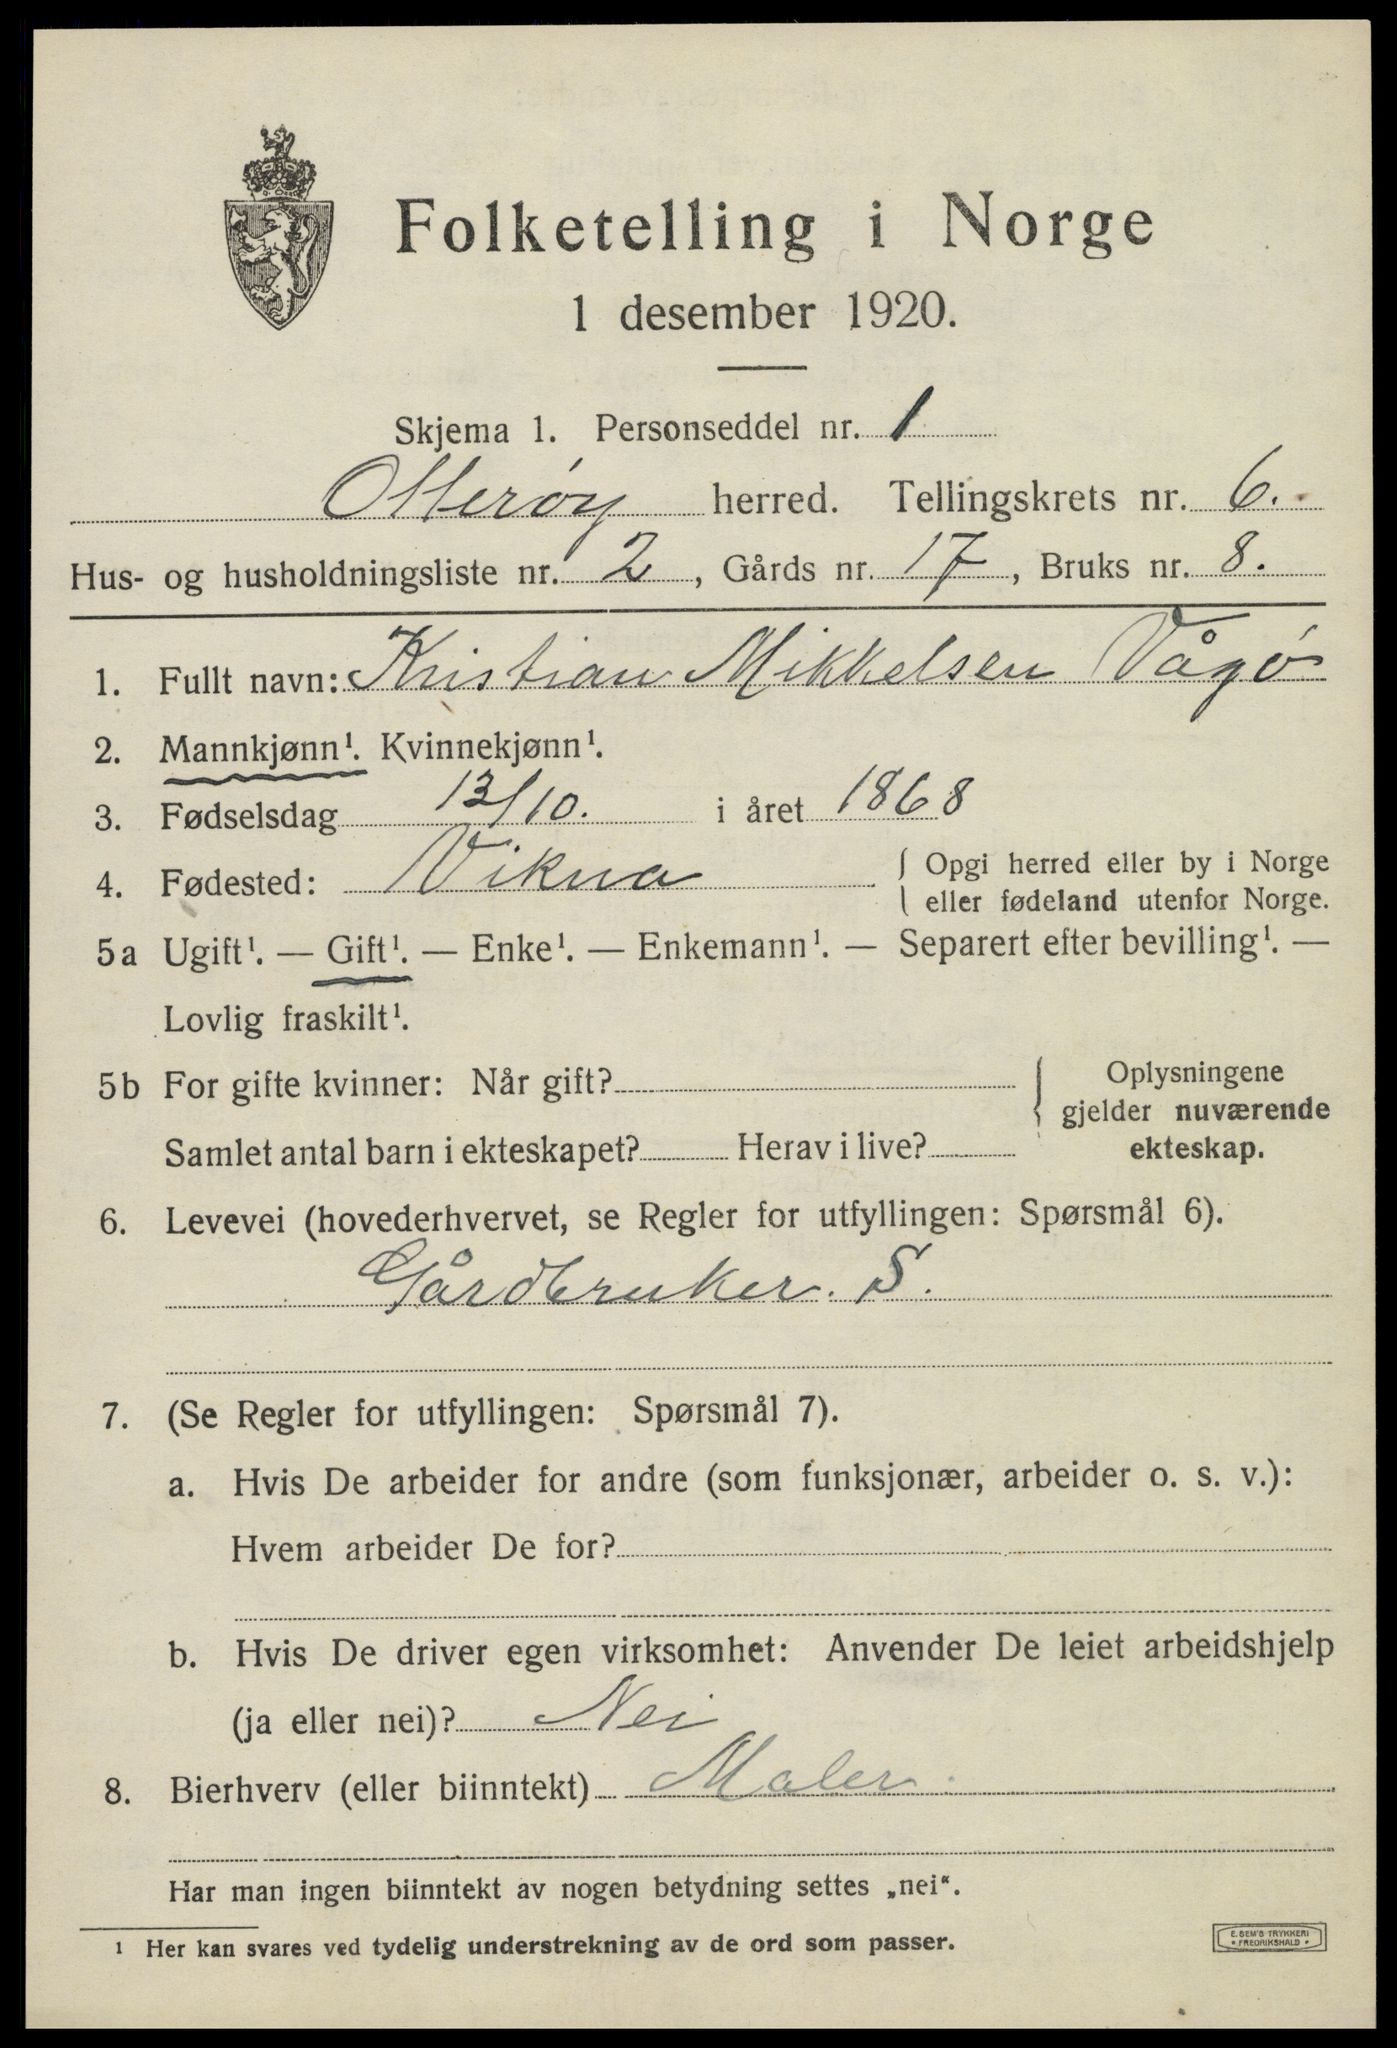 Folketelling i Norge
1 desember 1920.
Skjema 1. Personseddel nr. 1
Otterøy herred. Tellingskrets nr. 6.
Hus- og husholdningsliste nr. 2, Gårds nr. 17, Bruks nr. 8.
1. Fullt navn: Kristian Mikkelsen Vågø
2. Mannkjønn¹. Kvinnekjønn¹.
3. Fødselsdag 13/10. i året 1868
4. Fødested: Vikna { Opgi herred eller by i Norge
eller fødeland utenfor Norge.
5a Ugift¹. — Gift¹. — Enke¹. — Enkemann¹. — Separert efter bevilling¹. —
Lovlig fraskilt¹.
5b For gifte kvinner: Når gift?
Samlet antal barn i ekteskapet? Herav i live?
{ Oplysningene
gjelder nuværende
ekteskap.
6. Levevei (hovederhvervet, se Regler for utfyllingen: Spørsmål 6).
Gårdbruker. S.
7. (Se Regler for utfyllingen: Spørsmål 7).
a. Hvis De arbeider for andre (som funksjonær, arbeider o. s. v.):
Hvem arbeider De for?
b. Hvis De driver egen virksomhet: Anvender De leiet arbeidshjelp
(ja eller nei)? Nei
8. Bierhverv (eller biinntekt) Maler.
Har man ingen biinntekt av nogen betydning settes „nei“.
¹ Her kan svares ved tydelig understrekning av de ord som passer.
E. SEM'S TRYKKERI
• FREDRIKSHALD •